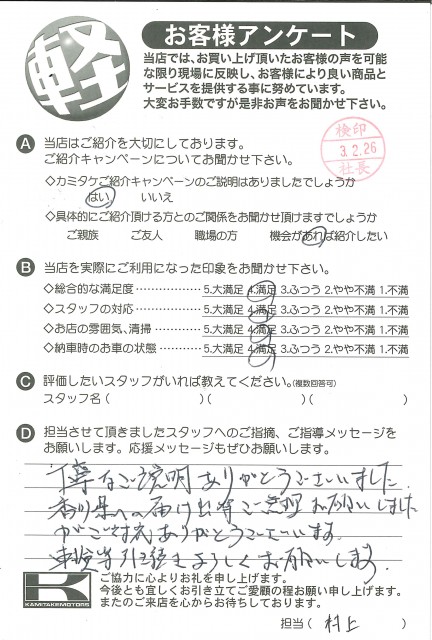 軽
お客様アンケート
当店では、お買い上げ頂いたお客様の声を可能
な限り現場に反映し、お客様により良い商品と
サービスを提供する事に努めています。
大変お手数ですが是非お声をお聞かせ下さい。
検印
3.2.26
社長
A 当店はご紹介を大切にしております。
ご紹介キャンペーンについてお聞かせ下さい。
◇カミタケご紹介キャンペーンのご説明はありましたでしょうか
はい いいえ
◇具体的にご紹介頂ける方とのご関係をお聞かせ頂けますでしょうか
ご親族 ご友人 職場の方 機会があれば紹介したい
B 当店を実際にご利用になった印象をお聞かせ下さい。
◇総合的な満足度・・・・・・・・・・・・・・・5.大満足 4.満足 3.ふつう 2.やや不満 1.不満
◇スタッフの対応・・・・・・・・・・・・・・・5.大満足 4.満足 3.ふつう 2.やや不満 1.不満
◇お店の雰囲気、清掃・・・・・・・・・5.大満足 4.満足 3.ふつう 2.やや不満 1.不満
◇納車時のお車の状態・・・・・・・・・5.大満足 4.満足 3.ふつう 2.やや不満 1.不満
C 評価したいスタッフがいれば教えてください。(複数回答可)
スタッフ名( )( )( )
D 担当させて頂きましたスタッフへのご指摘、ご指導メッセージを
お願いします。応援メッセージもぜひお願いします。
丁寧なご説明ありがとうございました
香川県への届け出等ご無理お願いしました
がご対応ありがとうございます。
車検等引続きよろしくお願いします。
K
KAMITAKE MOTORS
ご協力に心よりお礼を申し上げます。
今後とも宜しくお引き立てご愛顧の程お願い申し上げます。
またのご来店を心からお待ちしております。
担当( 村上 )